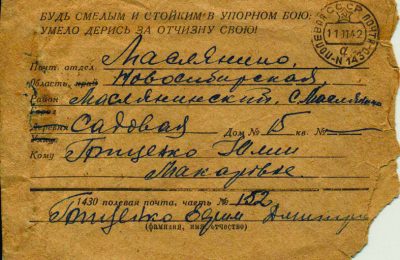 БУДЬ СМЕЛЫМ И СТОЙКИМ В УПОРНОМ БОЮ,
УМЕЛО ДЕРИСЬ ЗА ОТЧИЗНУ СВОЮ!
СССР
ПОЛЕВАЯ ПОЧТА
N 1430
а
Почт. отдел. Маслянино,
Область, край Новосибирская,
Район Маслянинский, с. Маслянино
Деревня Садовая Дом № 15 кв. №
Улица
Кому Гриценко Юлии
Макаровне.
1430 полевая почта, часть № 152,
Гриценко Ефим
(фамилия, имя, отчество)